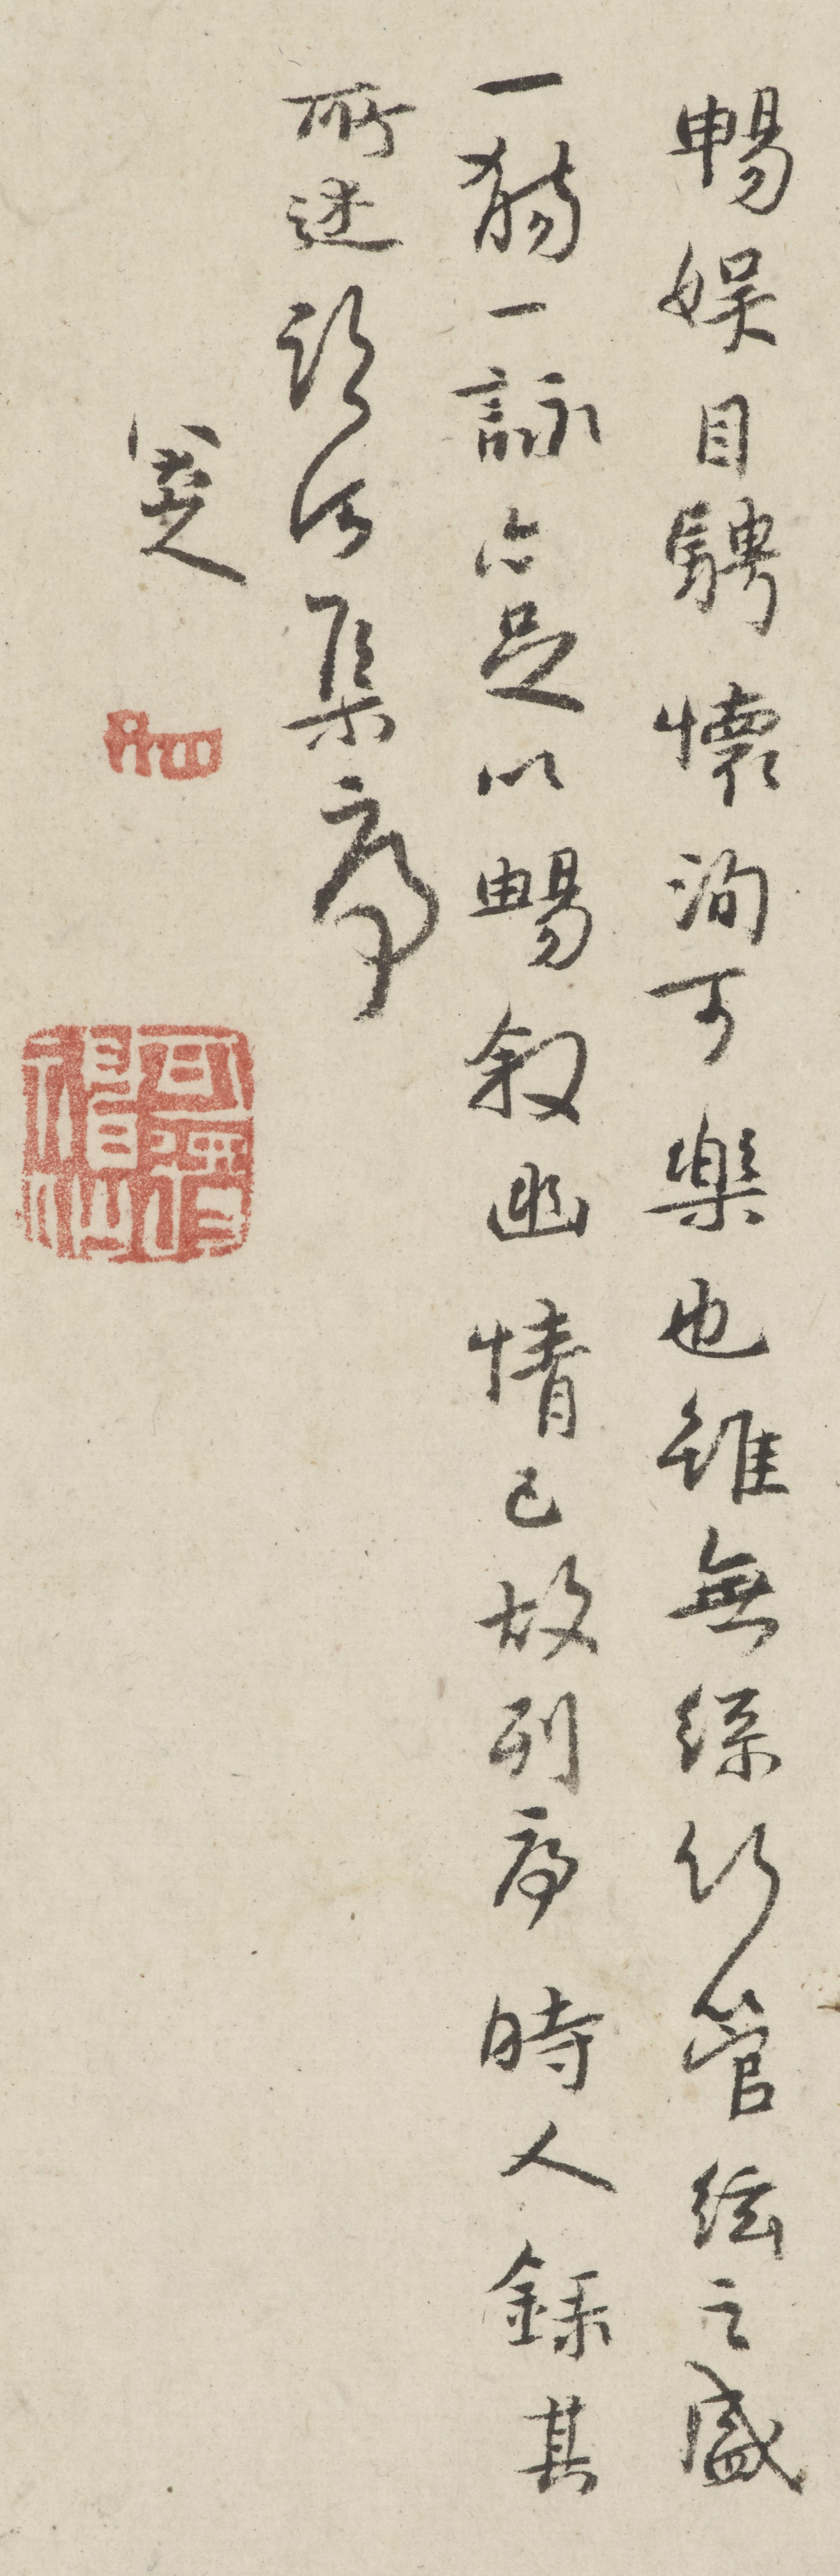 暢娛目騁懷洵可樂也雖無絲竹管絃之盛
一觴一詠亦足以暢叙幽情已故列序時人錄其
所述臨河集序
八大山人
可得神仙